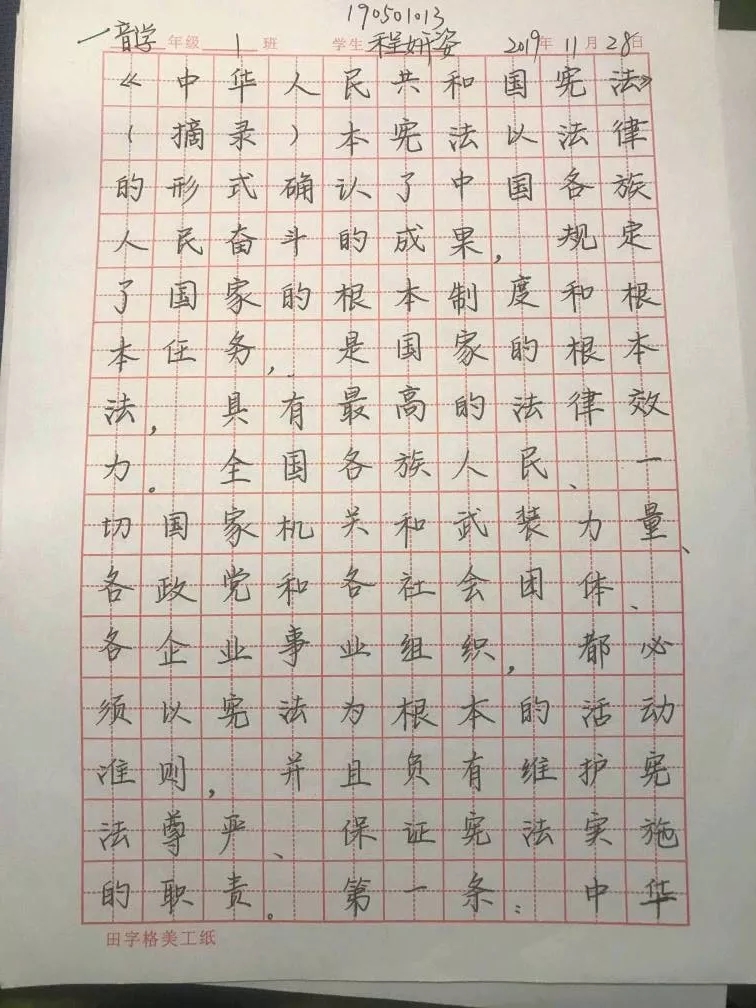 190501013
一音学 年级 1 班 学生 程妍姿 2019年11月28日
《中华人民共和国宪法》
(摘录)本宪法以法律
的形式确认了中国各族
人民奋斗的成果,规定
了国家的根本制度和根
本任务,是国家的根本
法,具有最高的法律效
力。全国各族人民、一
切国家机关和武装力量、
各政党和各社会团体、
各企业事业组织,都必
须以宪法为根本的活动
准则,并且负有维护宪
法尊严、保证宪法实施
的职责。第一条:中华
田字格美工纸